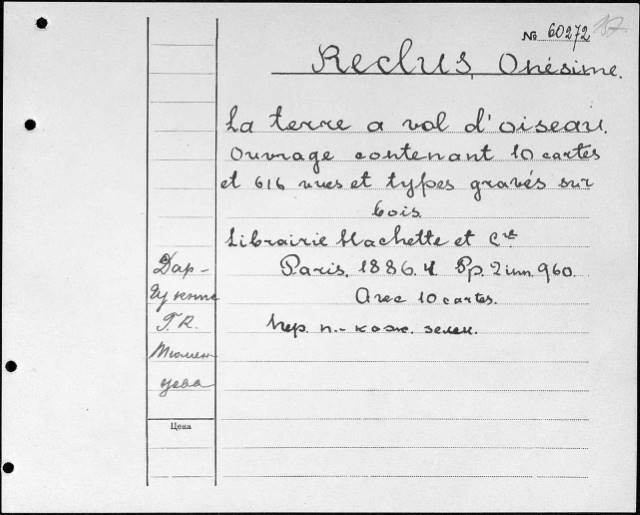 № 60272
Reclus, Onésime.
La terre a vol d'oiseau.
Ouvrage contenant 10 cartes
et 616 vues et types gravés sur
bois
Librairie Hachette et Cie
Paris. 1886. 4 Pp. 2 inn. 960.
Avec 10 cartes.
пер. п.-кож. зелен.
Дар-
Г. К.
Тюмен
цева
Цена